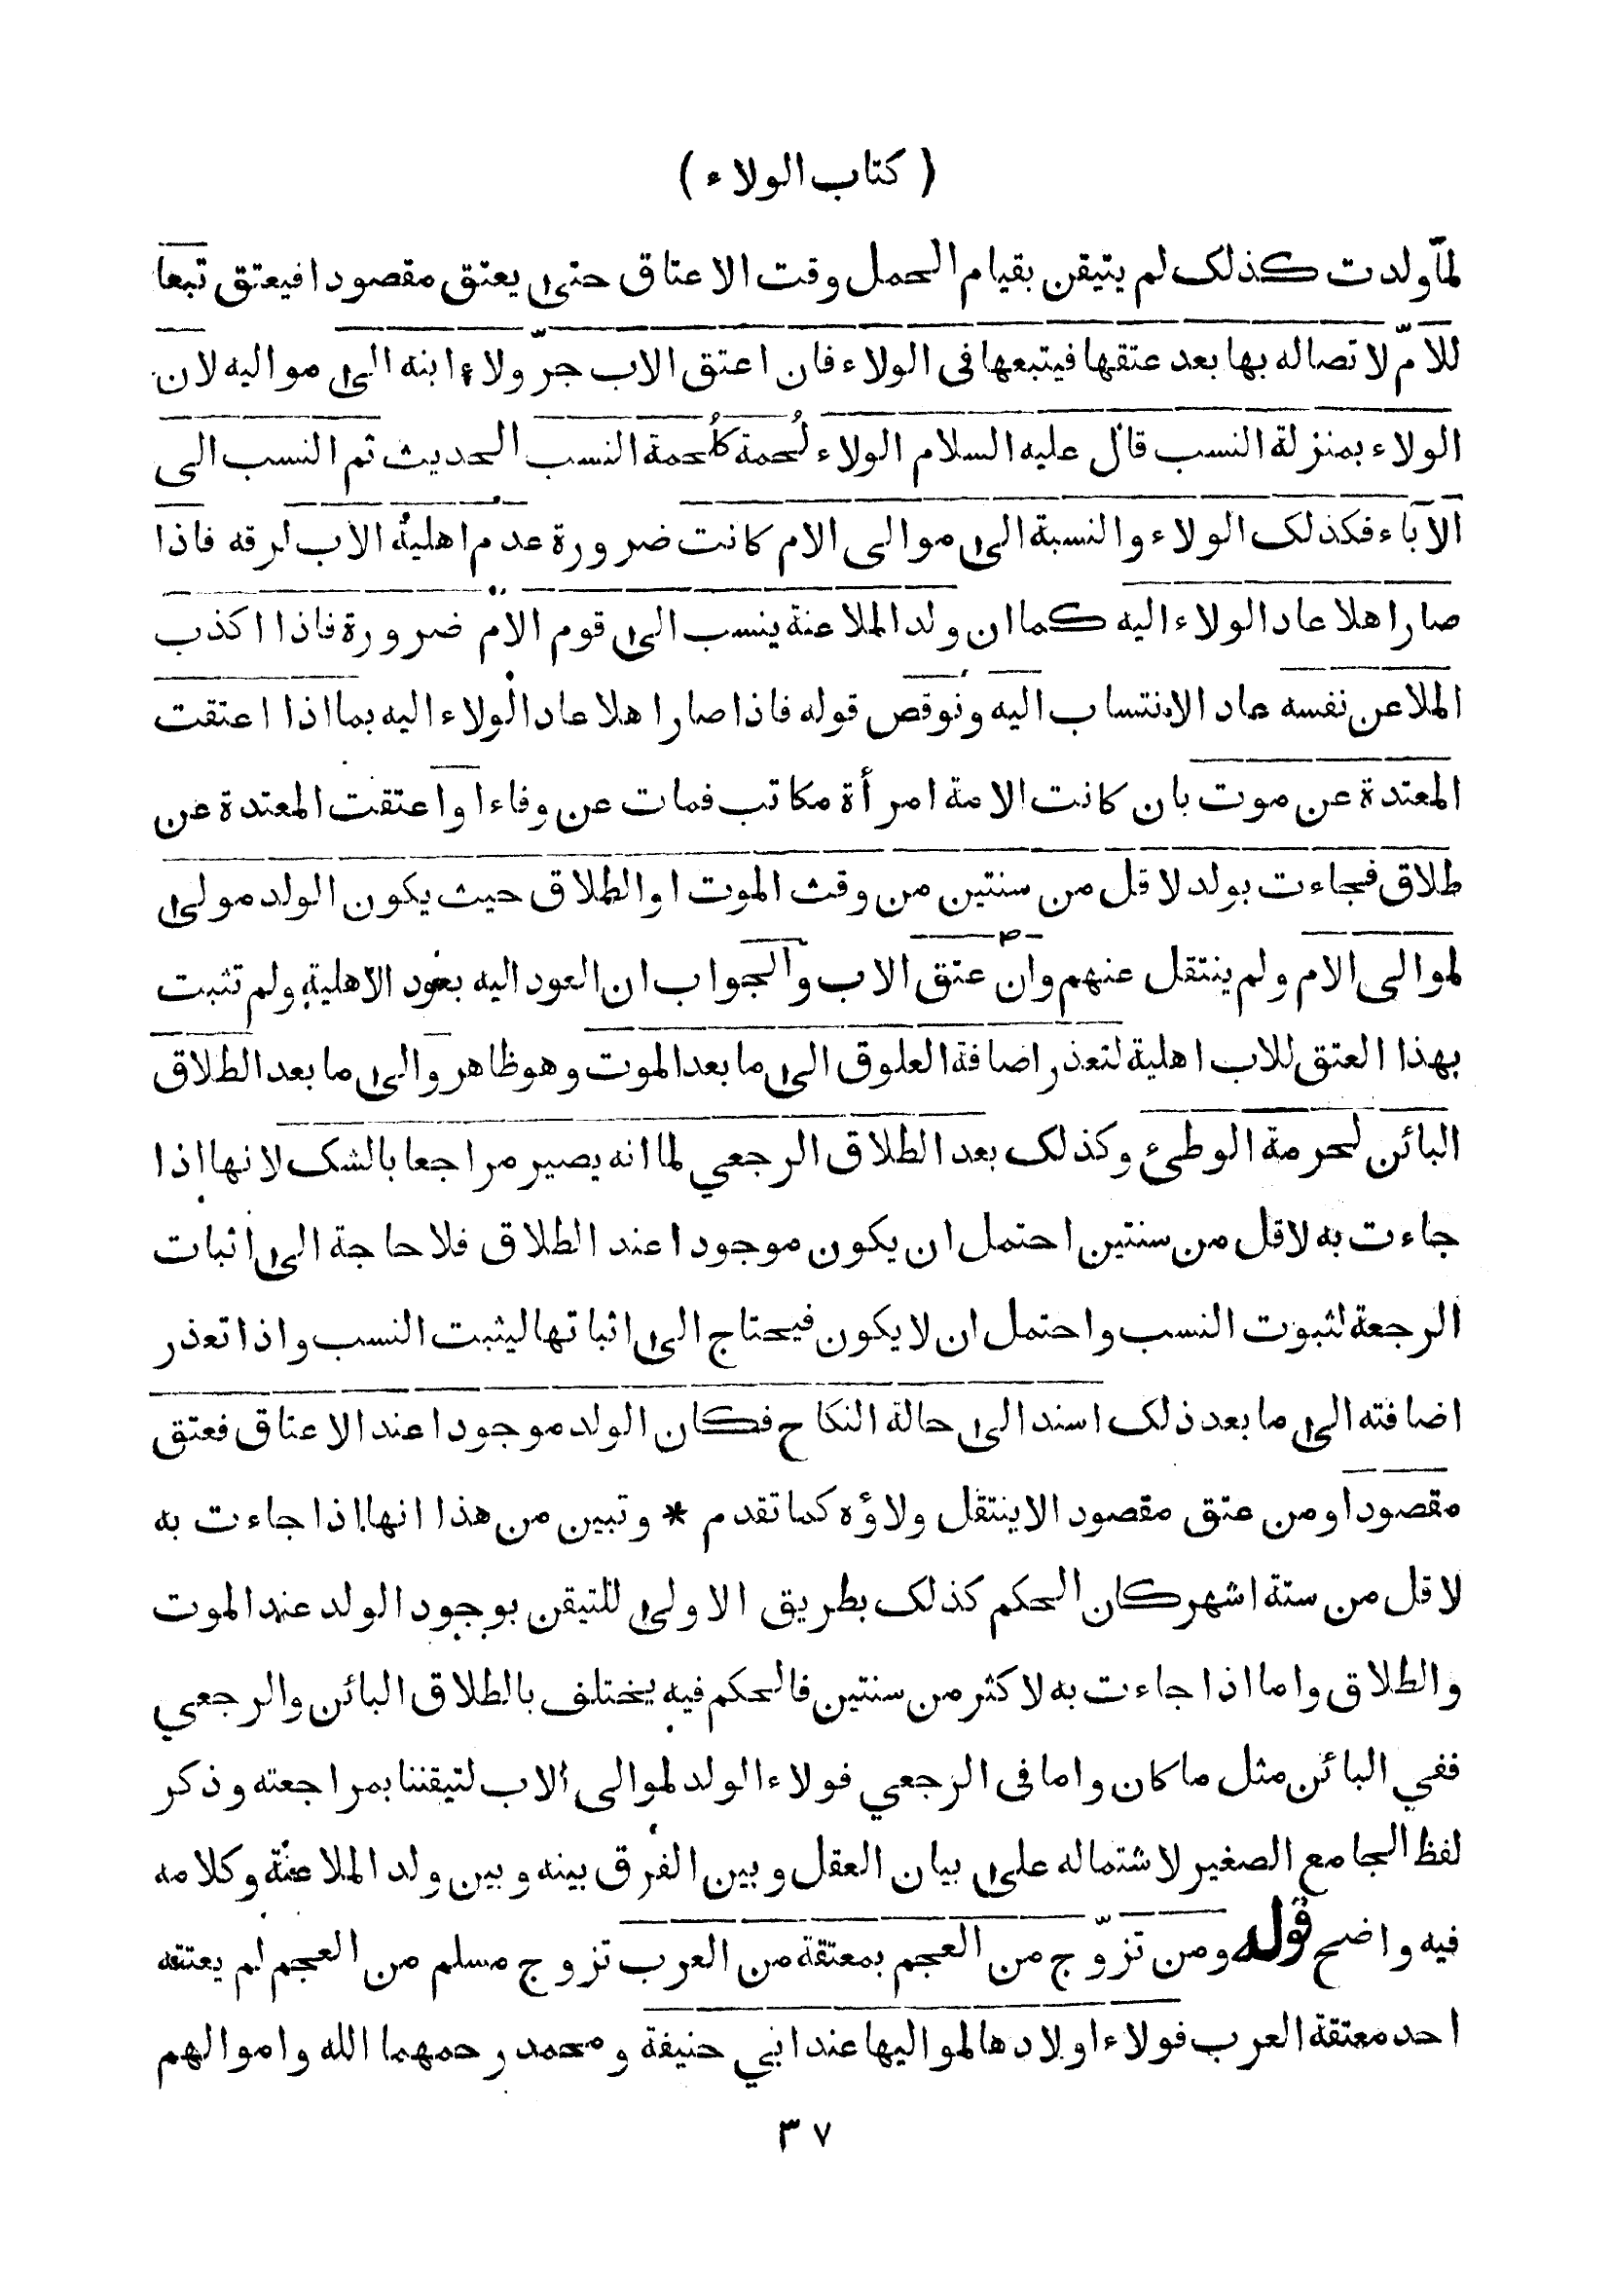 ( كتاب الولاء )
لمّا ولدت كذلك لم يتيقن بقيام الحمل وقت الاعتاق حتى يعتق مقصودا فيعتق تبعا
للامّ لاتصاله بها بعد عتقها فيتبعها فى الولاء فان اعتق الاب جرّ ولاء ابنه الى مواليه لان
الولاء بمنزلة النسب قال عليه السلام الولاء لُحمة كلُحمة النسب الحديث ثم النسب الى
الآباء فكذلك الولاء والنسبة الى موالى الام كانت ضرورة عدم اهلية الاب لرقه فاذا
صار اهلا عاد الولاء اليه كما ان ولد الملاعنة ينسب الى قوم الامّ ضرورة فاذا اكذب
الملاعن نفسه عاد الانتساب اليه ونُوقض قوله فاذا صار اهلا عاد الولاء اليه بما اذا اعتقت
المعتدة عن موت بان كانت الامة امرأة مكاتب فمات عن وفاء او اعتقت المعتدة عن
طلاق فجاءت بولد لاقل من سنتين من وقت الموت او الطلاق حيث يكون الولد مولى
لموالى الام ولم ينتقل عنهم وان عتق الاب والجواب ان العود اليه بعود الاهلية ولم تثبت
بهذا العتق للاب اهلية لتعذر اضافة العلوق الى ما بعد الموت وهو ظاهر والى ما بعد الطلاق
البائن لحرمة الوطئ وكذلك بعد الطلاق الرجعي لما انه يصير مراجعا بالشك لانها اذا
جاءت به لاقل من سنتين احتمل ان يكون موجودا عند الطلاق فلا حاجة الى اثبات
الرجعة لثبوت النسب واحتمل ان لا يكون فيحتاج الى اثباتها ليثبت النسب واذا تعذر
اضافته الى ما بعد ذلك اسند الى حالة النكاح فكان الولد موجودا عند الاعتاق فعتق
مقصودا ومن عتق مقصود الاينتقل ولاؤه كما تقدم * وتبين من هذا انها اذا جاءت به
لاقل من ستة اشهر كان الحكم كذلك بطريق الاولى للتيقن بوجود الولد عند الموت
والطلاق واما اذا جاءت به لاكثر من سنتين فالحكم فيه يختلف بالطلاق البائن والرجعي
ففي البائن مثل ما كان واما فى الرجعي فولاء الولد لموالى الاب لتيقننا بمراجعته وذكر
لفظ الجامع الصغير لاشتماله على بيان العقل وبين الفرق بينه وبين ولد الملاعنة وكلامه
فيه واضح قوله ومن تزوّج من العجم بمعتقة من العرب تزوج مسلم من العجم لم يعتقه
احد معتقة العرب فولاء اولادها لمواليها عند ابي حنيفة ومحمد رحمهما الله واموالهم
٣٧